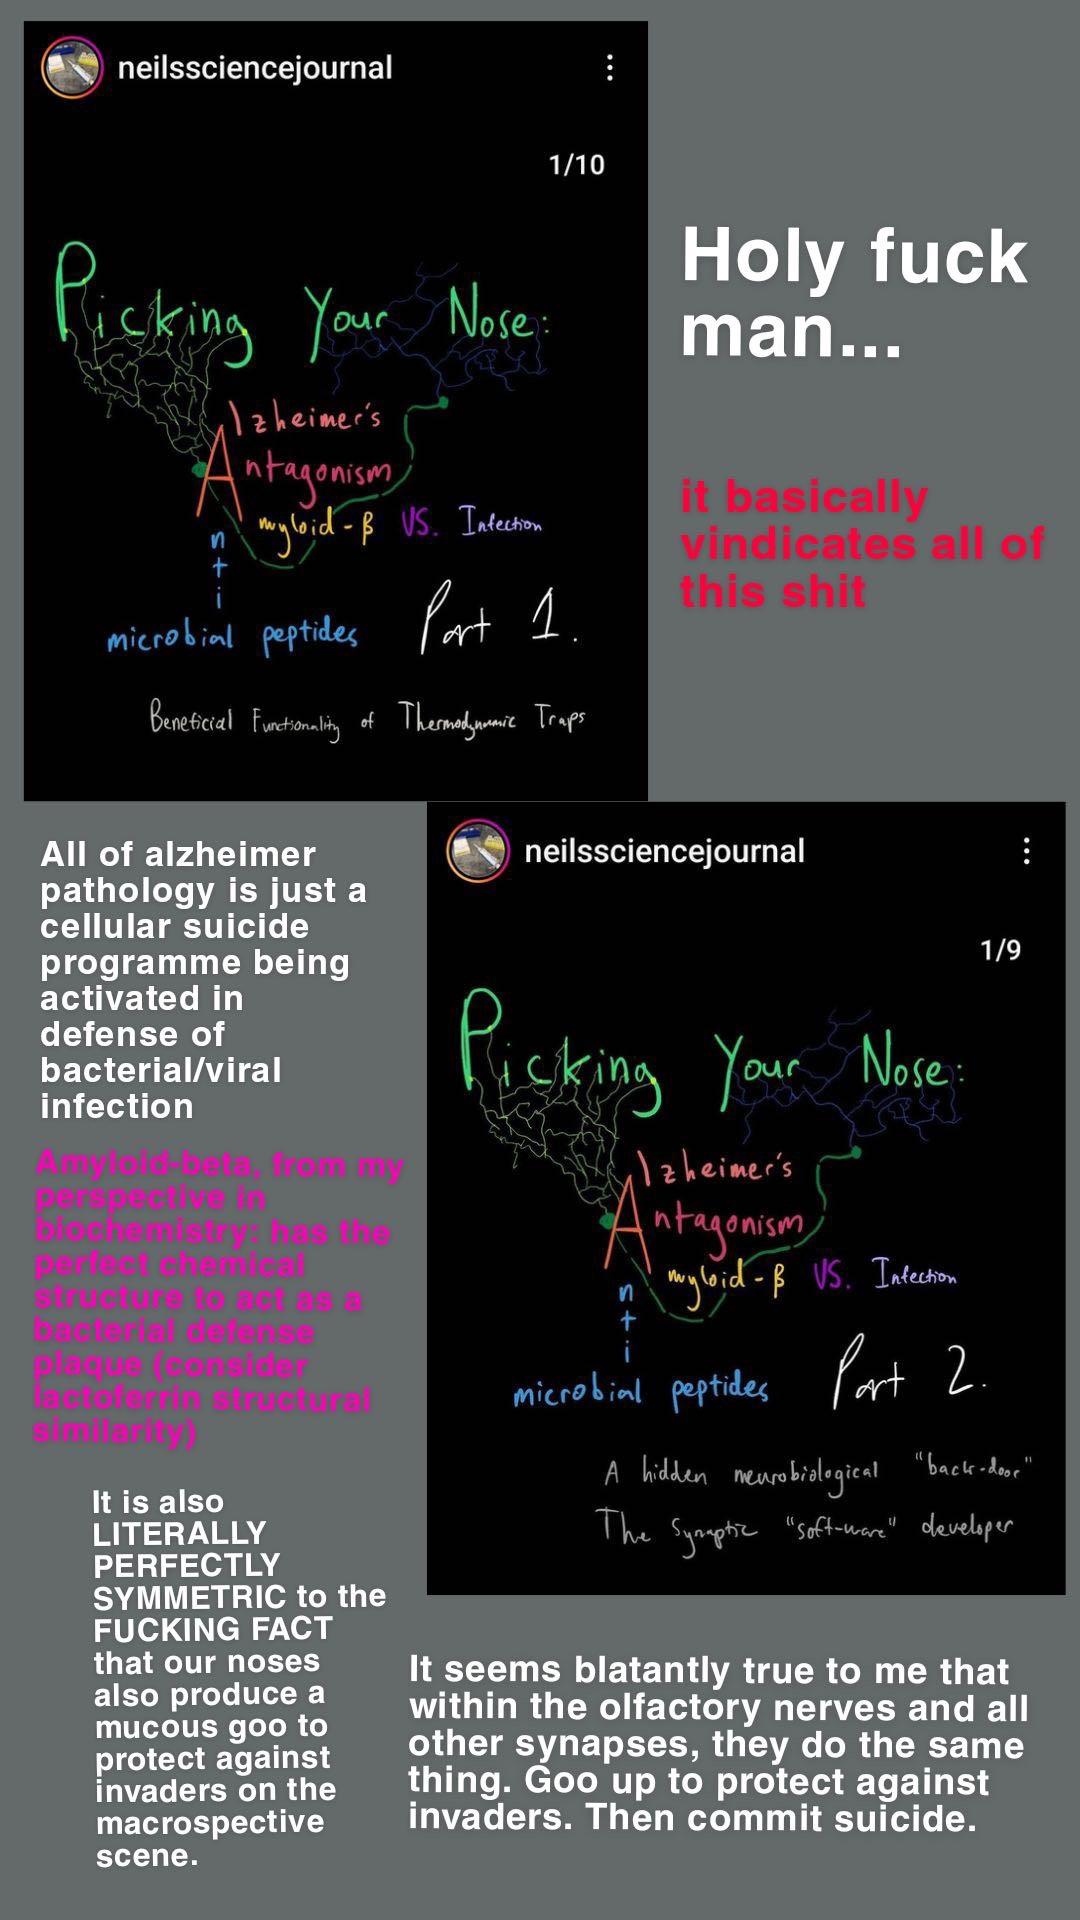 neilssciencejournal
1/10
Picking Your Nose:
Alzheimer's
Antagonism
Amyloid-β VS. Infection
Anti
microbial peptides
Part 1.
Beneficial Functionality of Thermodynamic Traps
Holy fuck
man...
it basically
vindicates all of
this shit
All of alzheimer
pathology is just a
cellular suicide
programme being
activated in
defense of
bacterial/viral
infection
Amyloid-beta, from my
perspective in
biochemistry: has the
perfect chemical
structure to act as a
bacterial defense
plaque (consider
lactoferrin structural
similarity)
It is also
LITERALLY
PERFECTLY
SYMMETRIC to the
FUCKING FACT
that our noses
also produce a
mucous goo to
protect against
invaders on the
macrospective
scene.
neilssciencejournal
1/9
Picking Your Nose:
Alzheimer's
Antagonism
Amyloid-β VS. Infection
Anti
microbial peptides
Part 2.
A hidden neurobiological "back-door"
The Synaptic "soft-ware" developer
It seems blatantly true to me that
within the olfactory nerves and all
other synapses, they do the same
thing. Goo up to protect against
invaders. Then commit suicide.